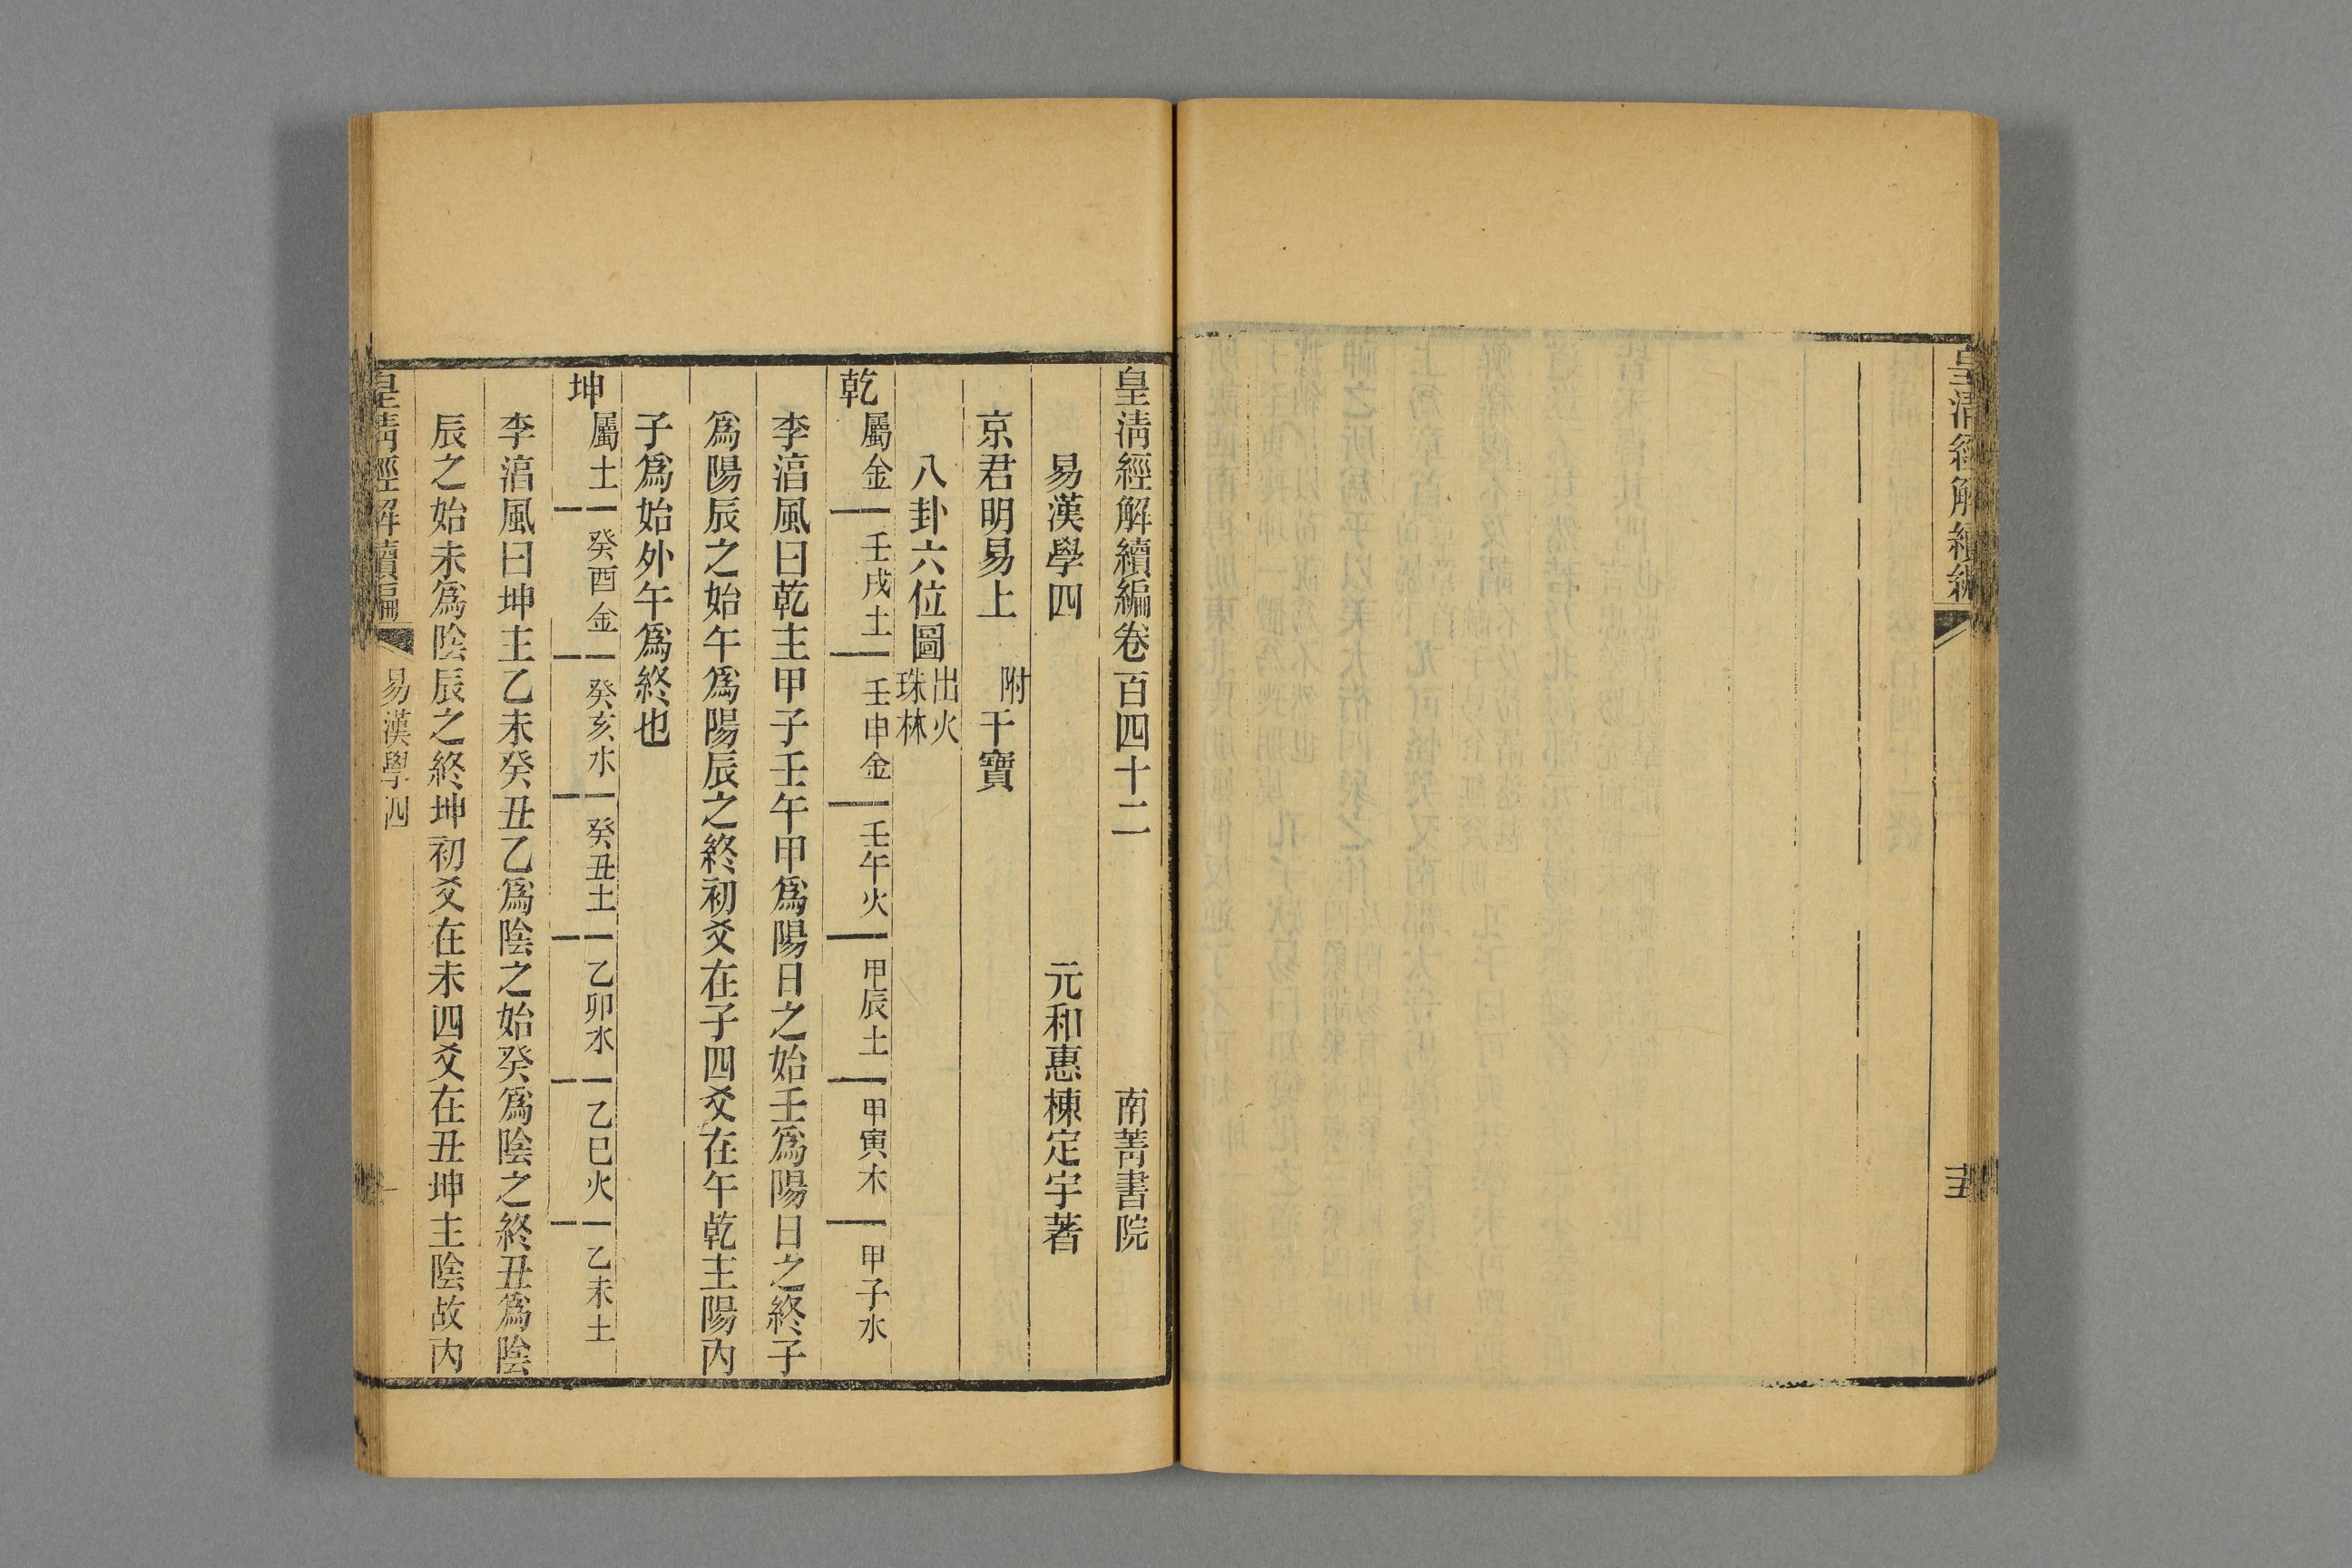 皇清經解續編
皇清經解續編卷百四十二　南菁書院
易漢學四　元和惠棟定宇著
京君明易上　附干寶
八卦六位圖 出火珠林
乾 屬金 壬戌土 壬申金 壬午火 甲辰土 甲寅木 甲子水
李湻風曰乾主甲子壬午甲爲陽日之始壬爲陽日之終子
爲陽辰之始午爲陽辰之終初爻在子四爻在午乾主陽內
子爲始外午爲終也
坤 屬土 癸酉金 癸亥水 癸丑土 乙卯木 乙巳火 乙未土
李湻風曰坤主乙未癸丑乙爲陰之始癸爲陰之終丑爲陰
辰之始未爲陰辰之終坤初爻在未四爻在丑坤主陰故內
皇清經解續編　易漢學四　一